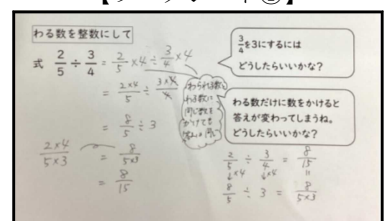 わる数を整数にして
式 2/5 ÷ 3/4 = 2/5 × 4 ÷ 3/4 × 4
= 2×4/5 ÷ 3×4/4
= 8/5 ÷ 3
2×4/5×3 = 8/5×3
= 8/15
わられる数と
わる数に
同じ数を
かけても
答えは同じ
3/4を3にするには
どうしたらいいかな？
わる数だけに数をかけると
答えが変わってしまうね。
どうしたらいいかな？
2/5 ÷ 3/4 = 8/15
↓×4 ↓×4 =
8/5 ÷ 3 = 8/5×3